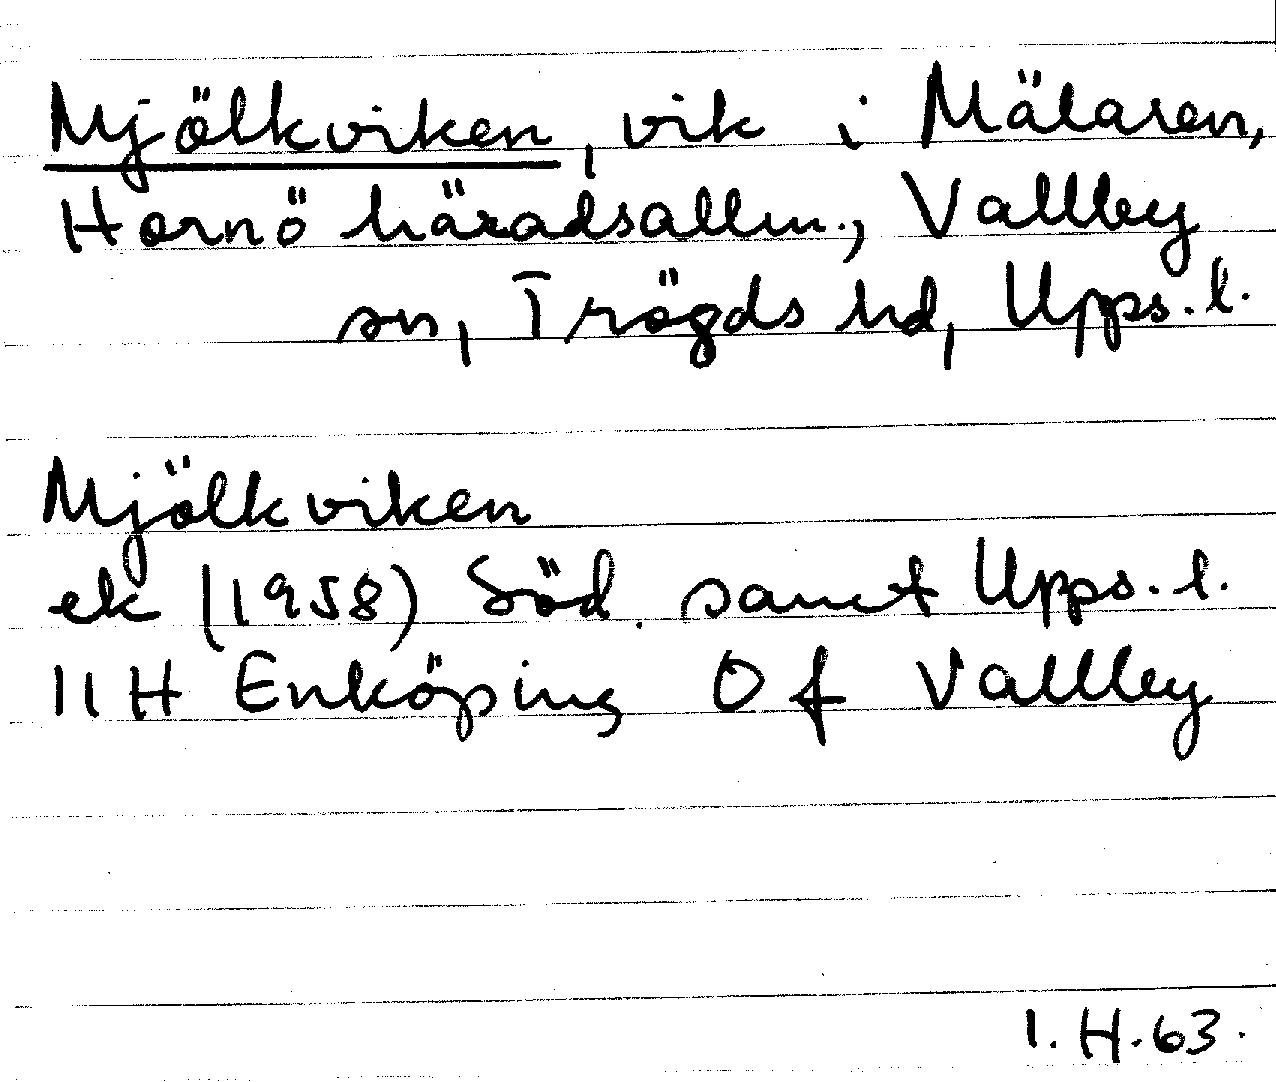 Mjölkviken, vik i Mälaren,
Hornö häradsallm., Vallby
sn, Trögds hd, Upps. l.
Mjölkviken
ek (1958) Söd. samt Upps. l.
11 H Enköping 0 f Vallby
I. H. 63.